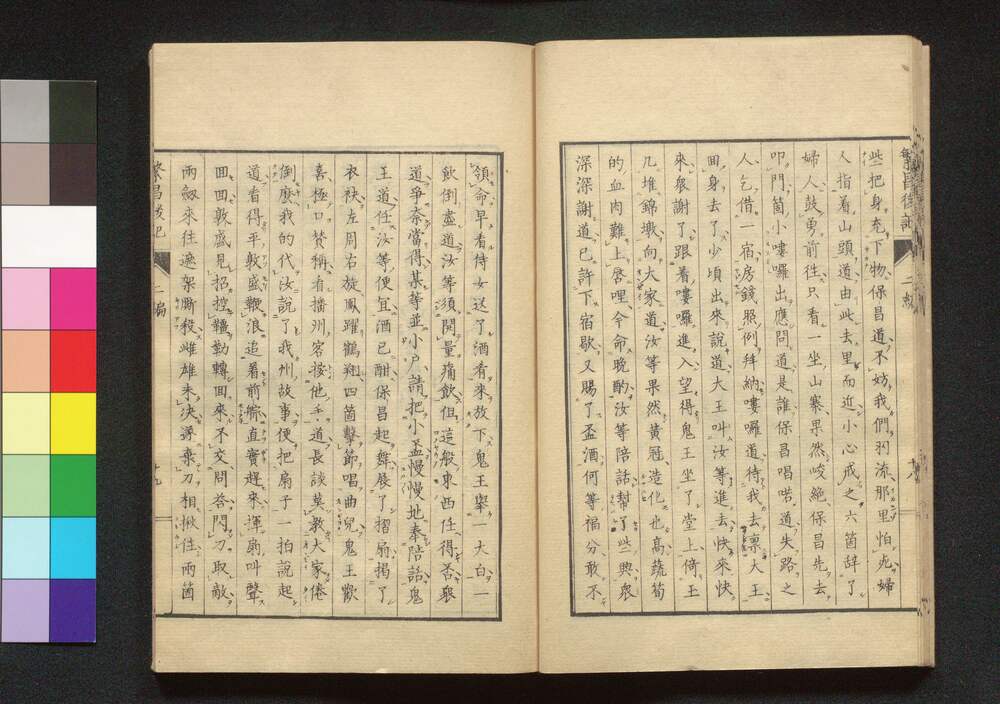 些把身充下物保昌道不妨我們羽流那里怕他婦
人指着山頭道由此去里而近小心戒之六箇辞了
婦人鼓勇前徃只看一坐山寨果然峻絶保昌先去
叩門箇小嘍囉出應問道是誰保昌唱喏道失路之
人乞借一宿房錢照例拜納嘍囉道待我去禀大王
回身去了少頃出來說道大王叫汝等進去快來快
來衆謝了跟着嘍囉進入望得鬼王坐了堂上倚玉
几堆錦墩向大家道汝等果然黄冠造化也高蔬筍
的血肉難上唇哩今命晩酌汝等陪話幇了些興衆
深深謝道已許下宿歇又賜了盃酒何等福分敢不
領命早看侍女送了酒肴來放下鬼王舉一大白一
飲倒盡道汝等須開量痛飲但這般東西任得否衆
道爭奈當得某等並小户請把小盃慢慢地奉陪話鬼
王道任汝等便宜酒已酣保昌起舞展了摺扇揭了
衣袂左周右旋鳳躍鶴翔四箇擊節唱曲兒鬼王歡
喜極口賛稱有播州客接他手道長談莫教大家倦
倒麽我的代汝說了我州故事便把扇子一拍說起
道看得平敦盛鞭浪追着前艨直實趕來揮扇叫聲
回回敦盛見招控韁勒轉面來不交問答閃刀取敵
兩劔來徃遮架厮殺雌雄未决遂棄刀相揪住兩箇
繁昌後記 二編 十九